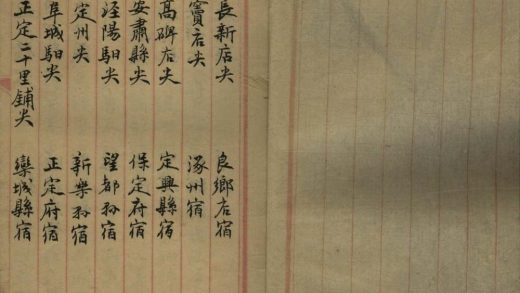 長新店尖 良鄉店宿
竇店尖 涿州宿
高碑店尖 定興縣宿
安肅縣尖 保定府宿
涇陽馹尖 望都縣宿
定州尖 新樂縣宿
阜城馹尖 正定府宿
正定二十里鋪尖 欒城縣宿